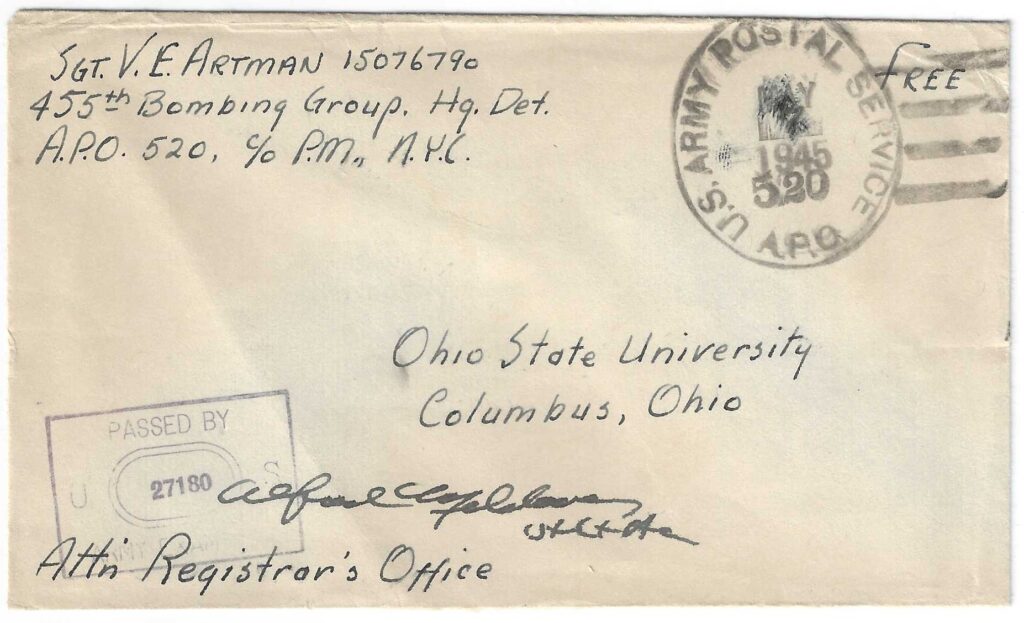 SGT. V. E. ARTMAN 15076790
455th Bombing Group. Hq. Det.
A.P.O. 520, c/o P.M., N.Y.C.
U.S. ARMY POSTAL SERVICE
A.P.O.
1945
520
FREE
Ohio State University
Columbus, Ohio
PASSED BY
U S
27180
ARMY
Alfred
Att'n Registrar's Office